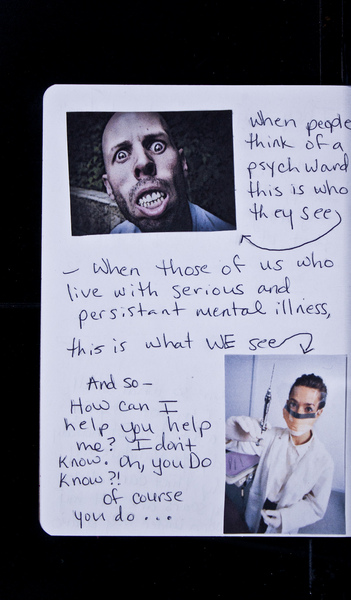 When people
think of a
psych ward
this is who
they see
– When those of us who
live with serious and
persistant mental illness,
this is what WE see
And so –
How can I
help you help
me? I don't
know. Oh, you Do
know?!
of course
you do...